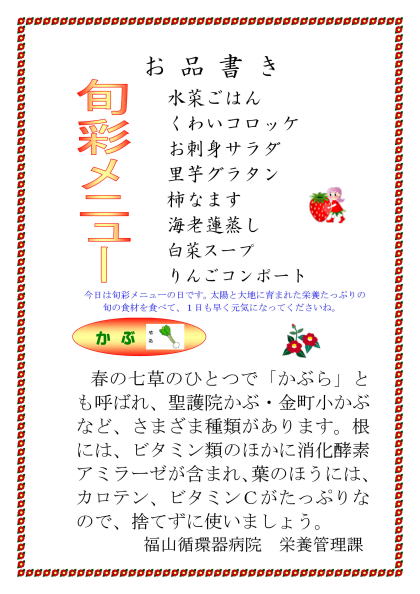 お品書き
旬彩メニュー
水菜ごはん
くわいコロッケ
お刺身サラダ
里芋グラタン
柿なます
海老蓮蒸し
白菜スープ
りんごコンポート
今日は旬彩メニューの日です。太陽と大地に育まれた栄養たっぷりの
旬の食材を食べて、１日も早く元気になってくださいね。
かぶ
春の七草のひとつで「かぶら」と
も呼ばれ、聖護院かぶ・金町小かぶ
など、さまざま種類があります。根
には、ビタミン類のほかに消化酵素
アミラーゼが含まれ、葉のほうには、
カロテン、ビタミンＣがたっぷりな
ので、捨てずに使いましょう。
福山循環器病院　栄養管理課